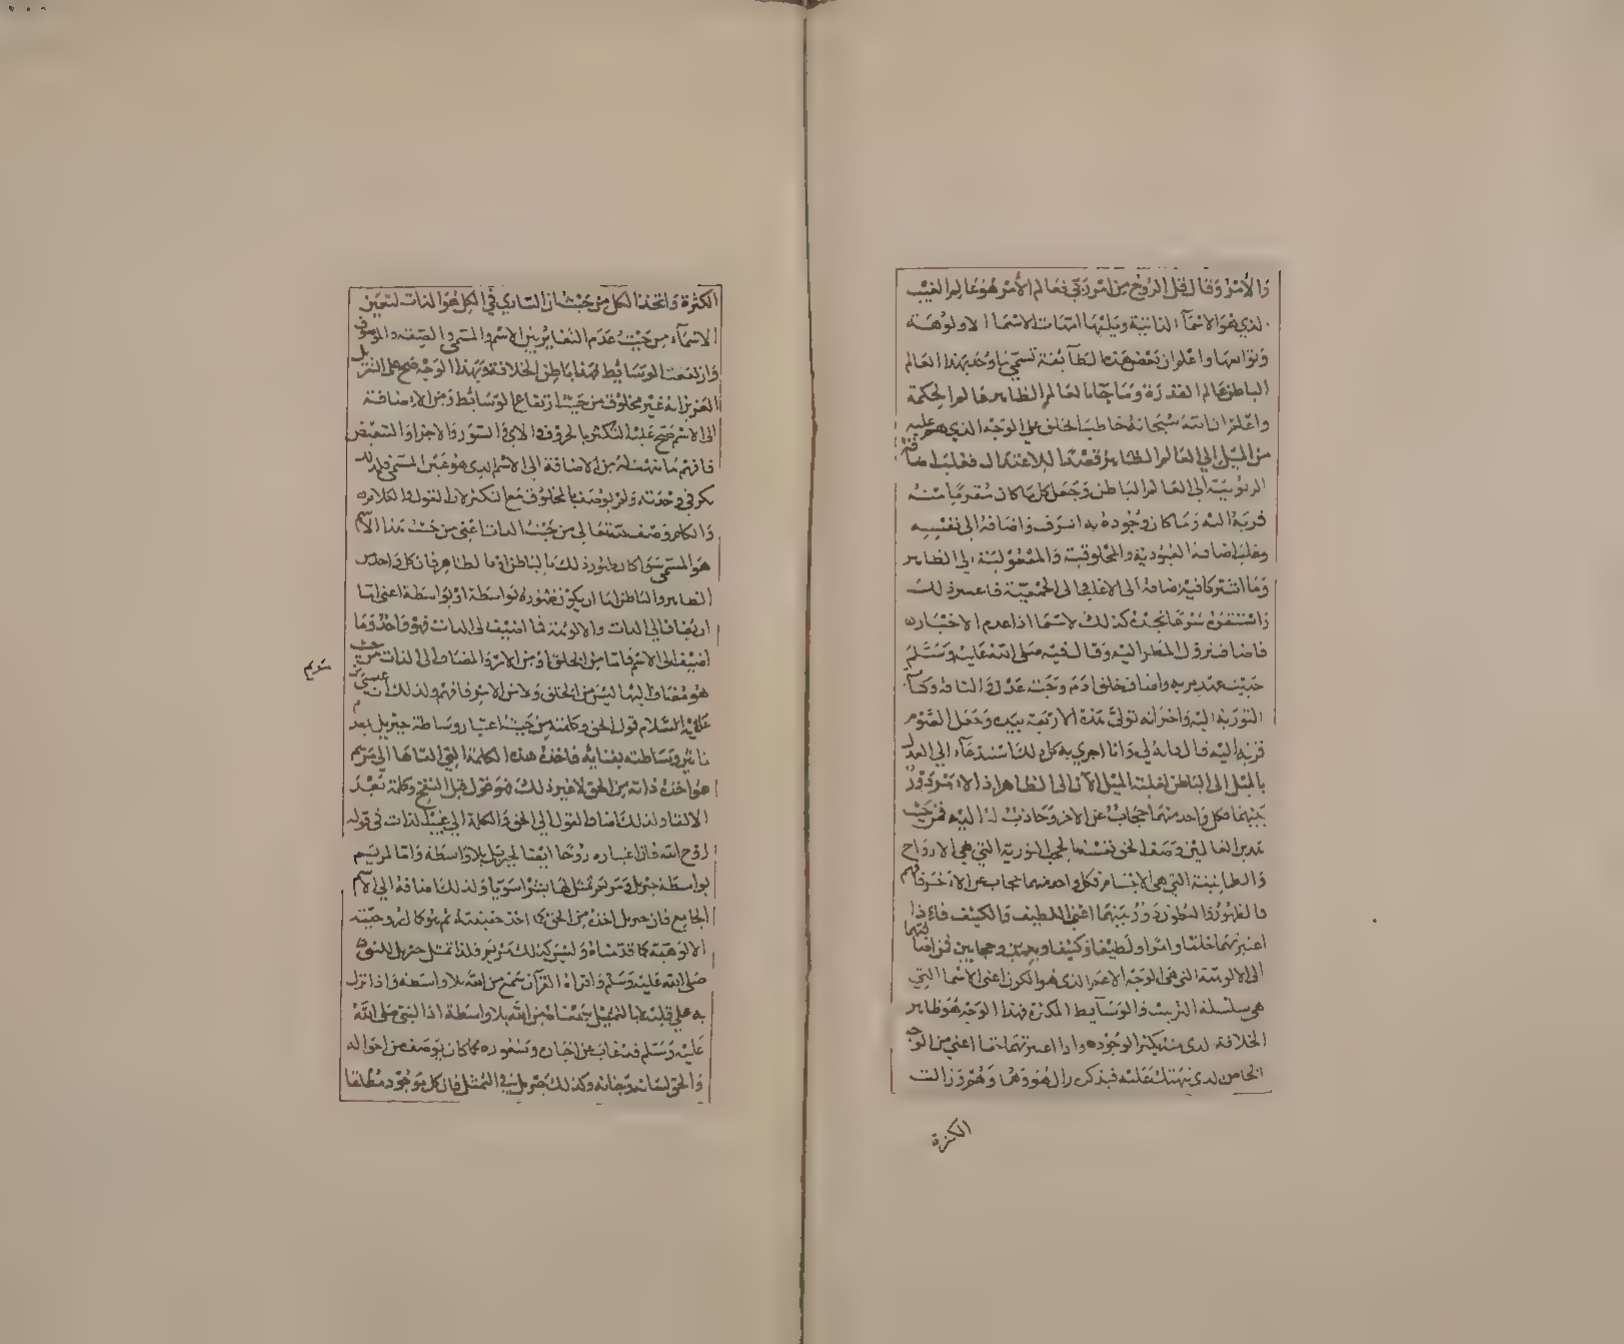 والأمر وقال قل الروح من امر ربي فعالم الأمر هو عالم الغيب
الذي هو الاسمآء الذاتية ويليها امهات الاسما الالوهية
وتوابعها واعلم ان بعض هذه الطآئفة تسمي ما وجد بهذا العالم
الباطن عالم القدرة وما جآء بالعالم الظاهر عالم الحكمة
واعلم ان الله سبحانه خاطب الخلق علي الوجه الذي هم عليه
من الميل الي العالم الظاهر قصدا للاعتدال فغلب
الربوبية الي العالم الباطن وجعل كل ما كان مقربا منه
قربة اليه وما كان وجوده به اشرف واضافه الي نفسه
وغلب اضافة العبودية والمخلوقية والمفعولية الي الظاهر
وما اشتركا فيه اضافه الي الاغلب الي الجمعية فاعتبر ذلك
كذلك لاسيما اذا عدم الاختيار
فاضاف نزول المطر اليه وقال فيه صلى الله عليه وسلم
حديث عهد بربه واضاف خلق ادم وجنة عدن
التورية اليه واخبر انه تولي هذه الاربعة بيده وجعل الصوم
قربة اليه قال فانه لي وانا اجزي به كل ذلك استدعآء الي العدل
بالميل الي الباطن لغلبة الميل الآن الي الظاهر اذ الامر دور
بينهما فكل واحد منهما حجاب عن الاخر وجاذب له اليه فمن حيث
العالمين وصف الحق نفسه بالحجب النورية التي هي الارواح
والظلمانية التي هي الاجسام فكل واحد منهما حجاب عن الآخر فافهم
فالظهور والبطون دور بينهما اعني اللطيف والكثيف فاذا
اعتبرتهما خلقا وامرا ولطيفا وكثيفا وحجابين فمن اضافتهما
الي الالوهية التي هي الوجه الاعم الذي هو الكون اعني الاسما التي
هي سلسلة الترتيب والوسآيط المكثرة فهذا الوجه هو ظاهر
الخلافة الذي منه يكثر الوجود واذا اعتبرتهما اعني من الوجه
الخاص الذي عليه هو وزالت
الكثرة
الكثرة واتحد الكل من حيث ان الساري في الكل هو الذات لتعين
الاسمآء من حيث عدم التغاير بين الاسم والمسمى والصفة والموصوف
وارتفعت الوسائط فهذا باطن الخلافة وبهذا الوجه صح على التنزيل
العزيز انه غير مخلوق من حيث ارتفاع الوسائط ومن الاضافة
الى الاسم صح عليه التكثر بالحروف والآي والسور والاجزا والتبعض
فافهم ما نبهتك من الاضافة الى الاسم الذي هو عين المسمى
في وحدته ولم يوصف بالمخلوق مع التكثر لان القول والكلام
والكلام وصف له تعالى من حيث الذات اعني من حيث هذا الاسم
هو المسمى سوا كان ظهور ذلك بالباطن او بالظاهر فان كل واحد من
الظاهر والباطن اما ان يكون ظهوره بواسطة او بلا واسطة اعني اما
ان يضاف الى الذات والالوهية فما اضيف الى الذات فهو واحد وما
اضيف الى الاسم فاما من الخلق او من الامر والمضاف الى الذات من حيث
تقديم
هو مضاف اليها ليس من الخلق ولا من الامر فافهم ولذلك ان عيسى
عليه السلام قول الحق وكلمته من حيث اعتبار وساطة جبريل بعد
تاثير وساطته بفنايه فاخذ هذه الكلمة التي القاها الى مريم
هو اخذ ذاته من الحق لا غير ذلك فهو قول قبل النفخ وكلمة بعد
الالقا ولذلك اضاف القول الي الحق والكلمة الي غيب الذات في قوله
روح الله فان اعتباره روحا ايضا لجبريل بلا واسطة واما لمريم
بواسطة جبريل ومن ثم تمثل لها بشرا سويا ولذلك اضافه الي الاسم
الجامع فان جبريل اخذ من الحق كما اخذ
الالوهية كما قدمناه وليس كذلك مريم ولذا تمثل جبريل للنبي
صلى الله عليه وسلم واقراه القرآن سمع من الله بلا واسطة واذا نزل
به علي قلبه لا بالتمثيل جمعا فمن الله بلا واسطة اذ النبي صلى الله
عليه وسلم قد غاب عن اخباره وشعوره بما كان يوصف من احواله
والحق لسانه وجنانه وكذلك جبريل في التمثل فان كل موجود مطلقا